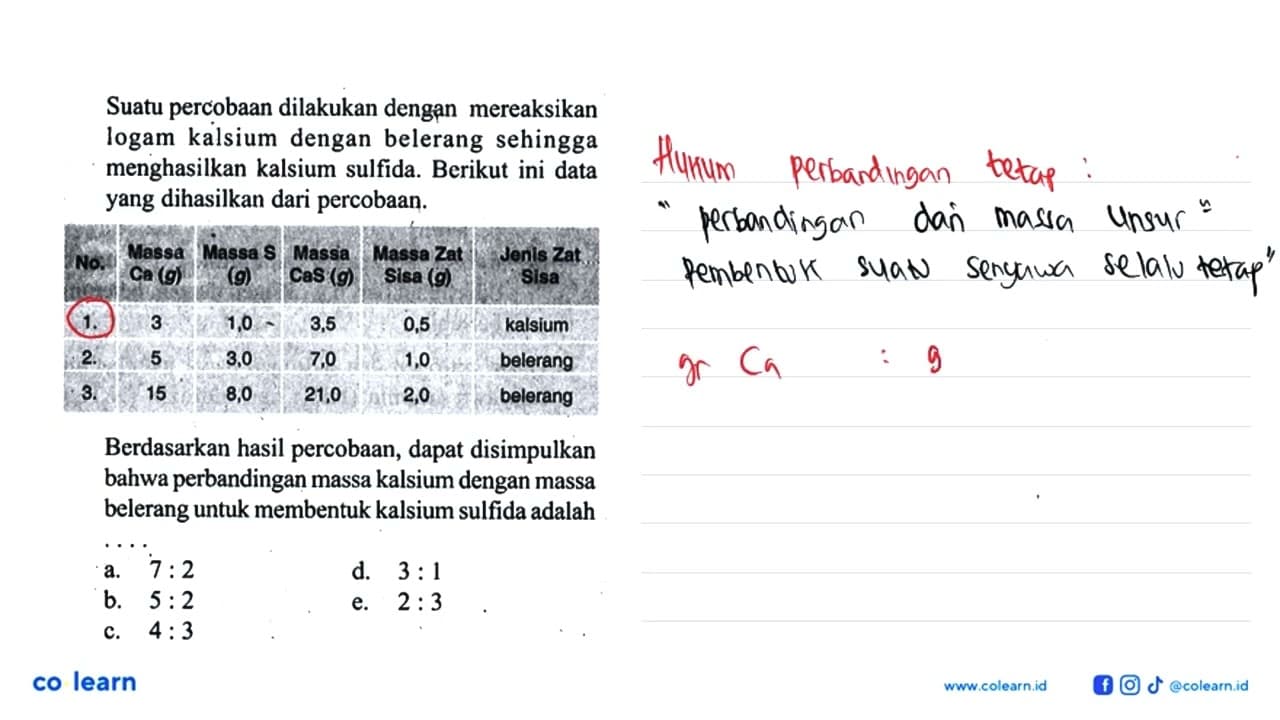 Suatu percobaan dilakukan dengan mereaksikan
logam kalsium dengan belerang sehingga
menghasilkan kalsium sulfida. Berikut ini data
yang dihasilkan dari percobaan.
No. Massa Ca (g) Massa S (g) Massa CaS (g) Massa Zat Sisa (g) Jenis Zat Sisa
1. 3 1,0 3,5 0,5 kalsium
2. 5 3,0 7,0 1,0 belerang
3. 15 8,0 21,0 2,0 belerang
Berdasarkan hasil percobaan, dapat disimpulkan
bahwa perbandingan massa kalsium dengan massa
belerang untuk membentuk kalsium sulfida adalah
....
a. 7 : 2
b. 5 : 2
c. 4 : 3
d. 3 : 1
e. 2 : 3
Hukum perbandingan tetap :
" perbandingan dari massa unsur =
pembentuk suatu senyawa selalu tetap"
gr Ca : g
co learn
www.colearn.id
@colearn.id